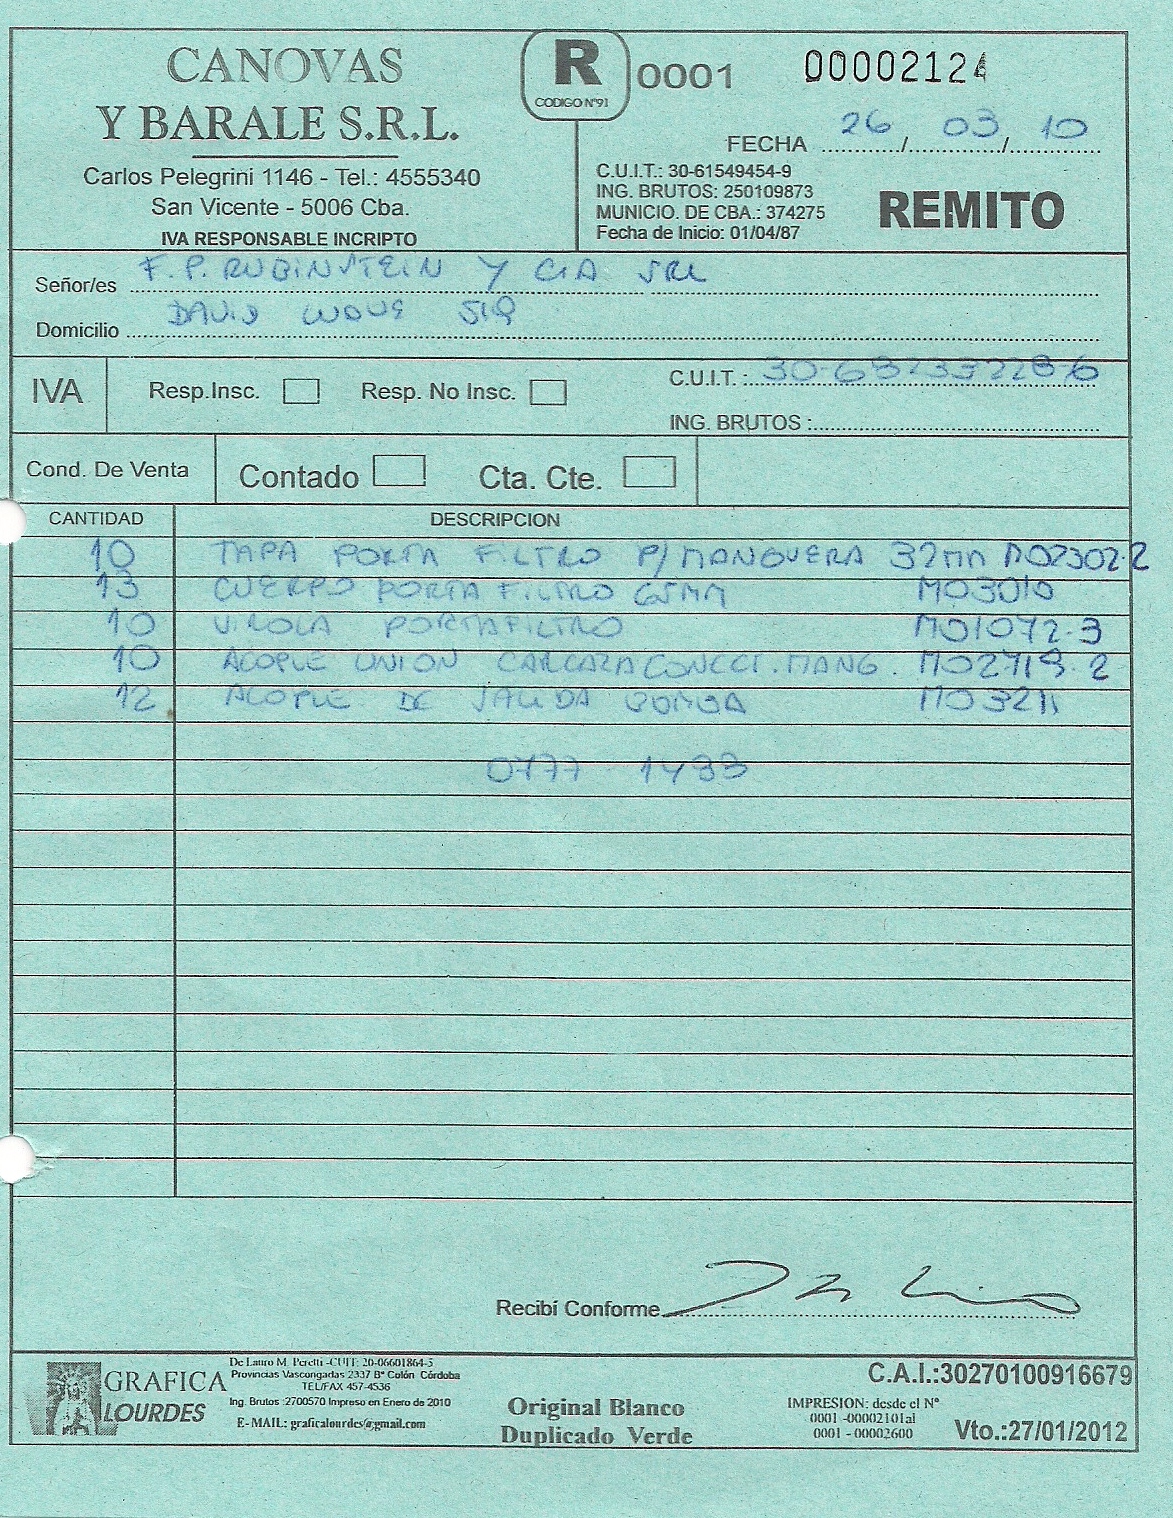 CANOVAS
Y BARALE S.R.L.
Carlos Pelegrini 1146 - Tel.: 4555340
San Vicente - 5006 Cba.
IVA RESPONSABLE INCRIPTO
R
CODIGO Nº91
0001 00002124
FECHA 26/03/10
C.U.I.T.: 30-61549454-9
ING. BRUTOS: 250109873
MUNICIO. DE CBA.: 374275
Fecha de Inicio: 01/04/87
REMITO
Señor/es F.P. RUBINSTEIN Y CIA SRL
Domicilio DAVID LUQUE 519
IVA Resp.Insc. Resp. No Insc. C.U.I.T. : 30-68233228-6
ING. BRUTOS :
Cond. De Venta Contado Cta. Cte.
CANTIDAD DESCRIPCION
10 TAPA PORTA FILTRO P/MANGUERA 32MM M02302-2
13 CUERPO PORTA FILTRO 65MM M03010
10 VIROLA PORTAFILTRO M01072-3
10 ACOPLE UNION CARCAZA CONECT. MANG. M02719-2
12 ACOPLE DE SALIDA BOMBA M03211
0777 1433
Recibí Conforme
GRAFICA
LOURDES
De Lauro M. Peretti -CUIT: 20-06601864-5
Provincias Vascongadas 2337 Bº Colón Córdoba
TEL/FAX 457-4536
Ing. Brutos :2700570 Impreso en Enero de 2010
E-MAIL: graficalourdes@gmail.com
Original Blanco
Duplicado Verde
C.A.I.:30270100916679
IMPRESION: desde el Nº
0001 -00002101al
0001 - 00002600
Vto.:27/01/2012